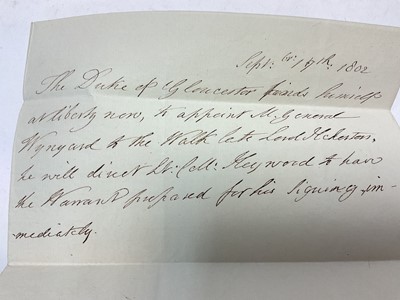 Sept:br: 17th: 1802
The Duke of Gloucester finds himself
at liberty now, to appoint M: General
Wynyard to the Walk late Lord
he will direct Lt: C: Heywood to have
the Warrant prepared for his signing im-
-mediately.